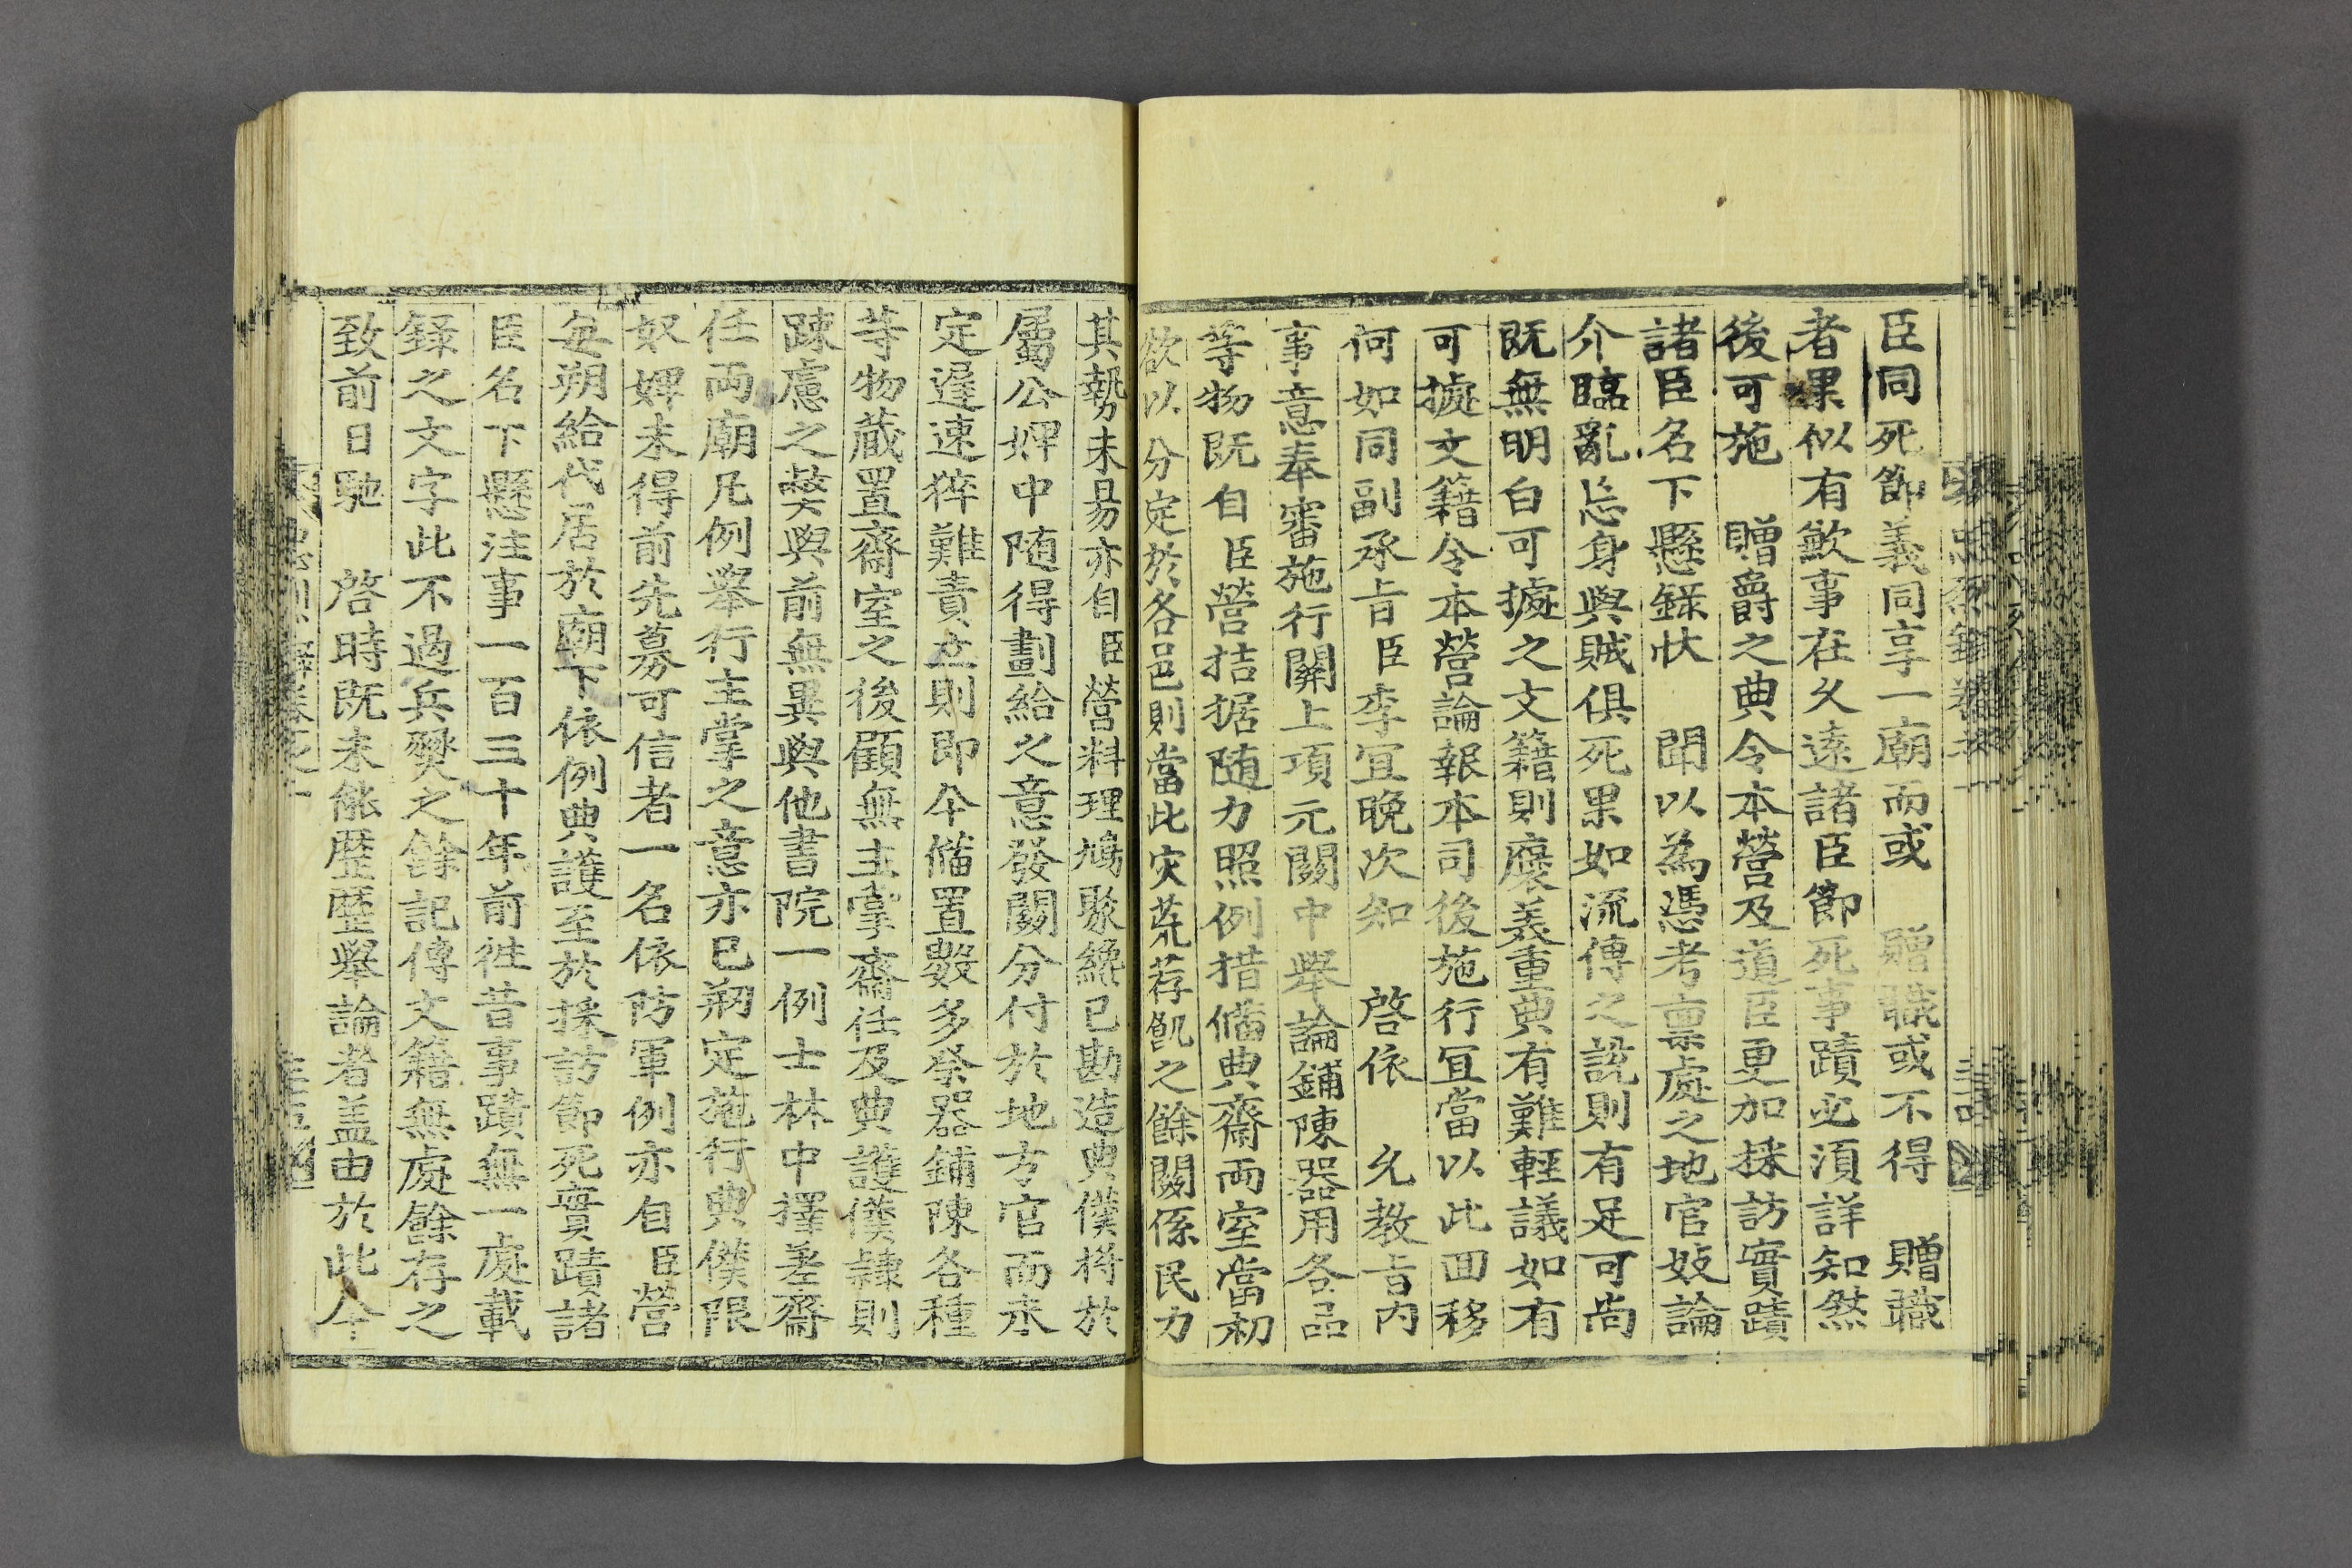 臣同死節義同享一廟而或 贈職或不得 贈職
者果似有歉事在久遠諸臣節死事蹟必湏詳知然
後可施 贈爵之典令本營及道臣更加採訪實蹟
諸臣名下懸錄狀 聞以為憑考稟處之地官妓論
介臨亂忘身與賊俱死果如流傳之說則有足可尚
既無明白可據之文籍則褒美重典有難輕議如有
可據文籍令本營論報本司後施行冝當以此回移
何如同副承旨臣李冝晚次知 啓依 允教旨內
事意奉審施行關上項元關中舉論鋪陳器用各品
等物既自臣營拮据随力照例措備典齋兩室當初
欲以分定於各邑則當此灾荒荐飢之餘關係民力
其勢未易亦自臣營料理鳩聚纔已勘造典僕將於
屬公婢中随得劃給之意發關分付於地方官而永
定遲速猝難責立則即今備置數多祭器鋪陳各種
等物蔵置齋室之後顧無主掌齋任及典護僕隷則
踈慮之獘與前無異與他書院一例士林中擇差齋
任兩廟凡例舉行主掌之意亦已剏定施行典僕限
奴婢未得前先募可信者一名依防軍例亦自臣營
每朔給代居於廟下依例典護至於採訪節死實蹟諸
臣名下懸注事一百三十年前徃昔事蹟無一處載
錄之文字此不過兵燹之餘記傳文籍無處餘存之
致前日馳 啓時既未能歷歷舉論者盖由於此今